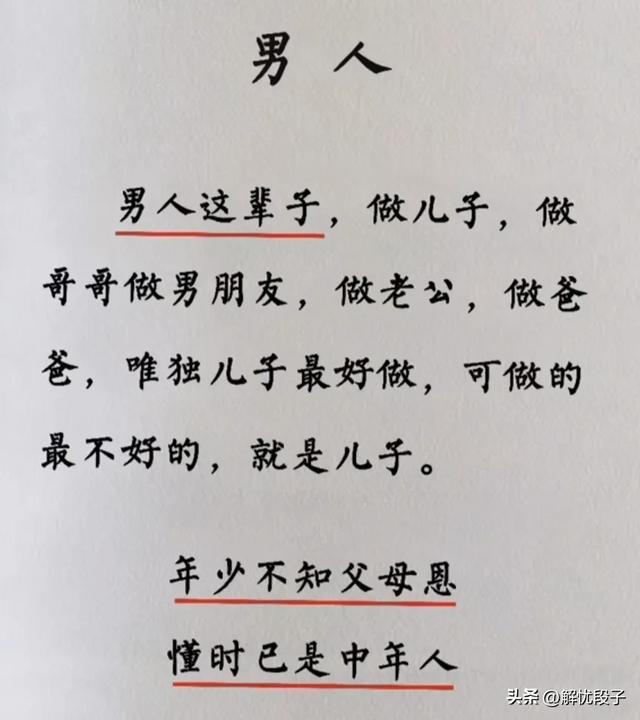 男人
男人这辈子，做儿子，做
哥哥做男朋友，做老公，做爸
爸，唯独儿子最好做，可做的
最不好的，就是儿子。
年少不知父母恩
懂时已是中年人
头条 @解忧段子